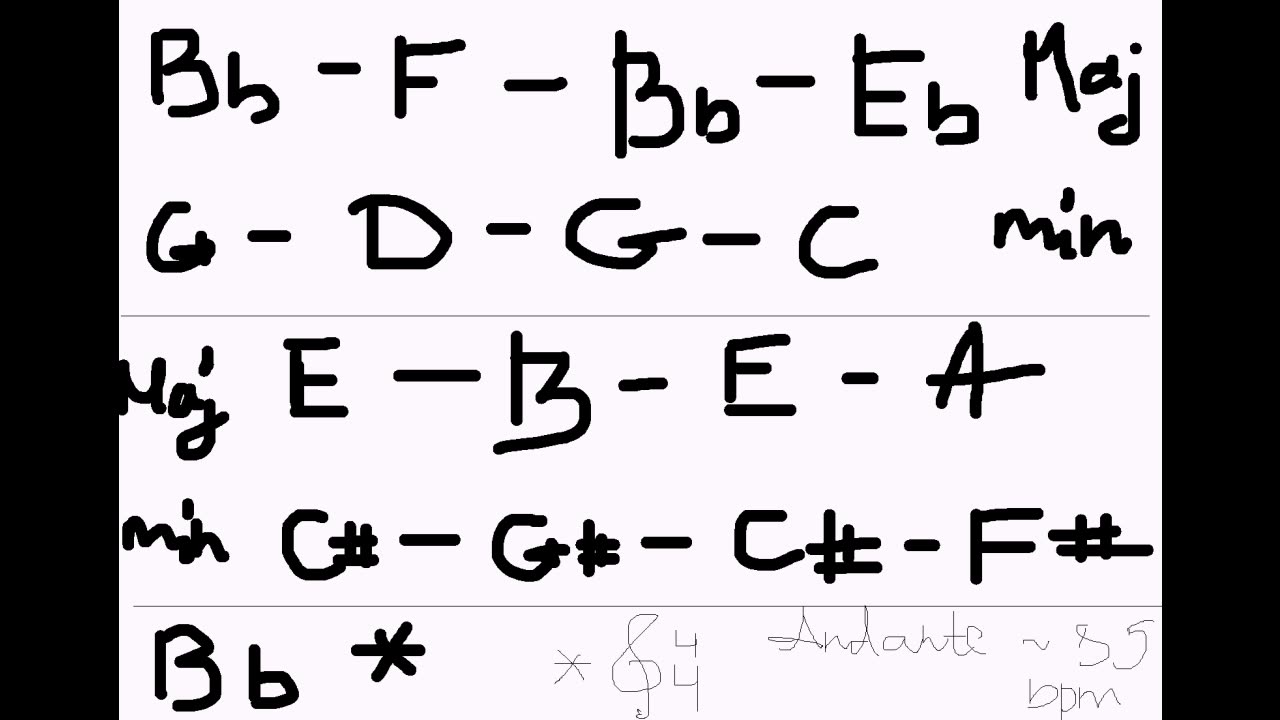 Bb - F - Bb - Eb Maj
G - D - G - C min
Maj E - B - E - A
min C# - G# - C# - F#
Bb * * 4/4 Andante ~ 85
bpm